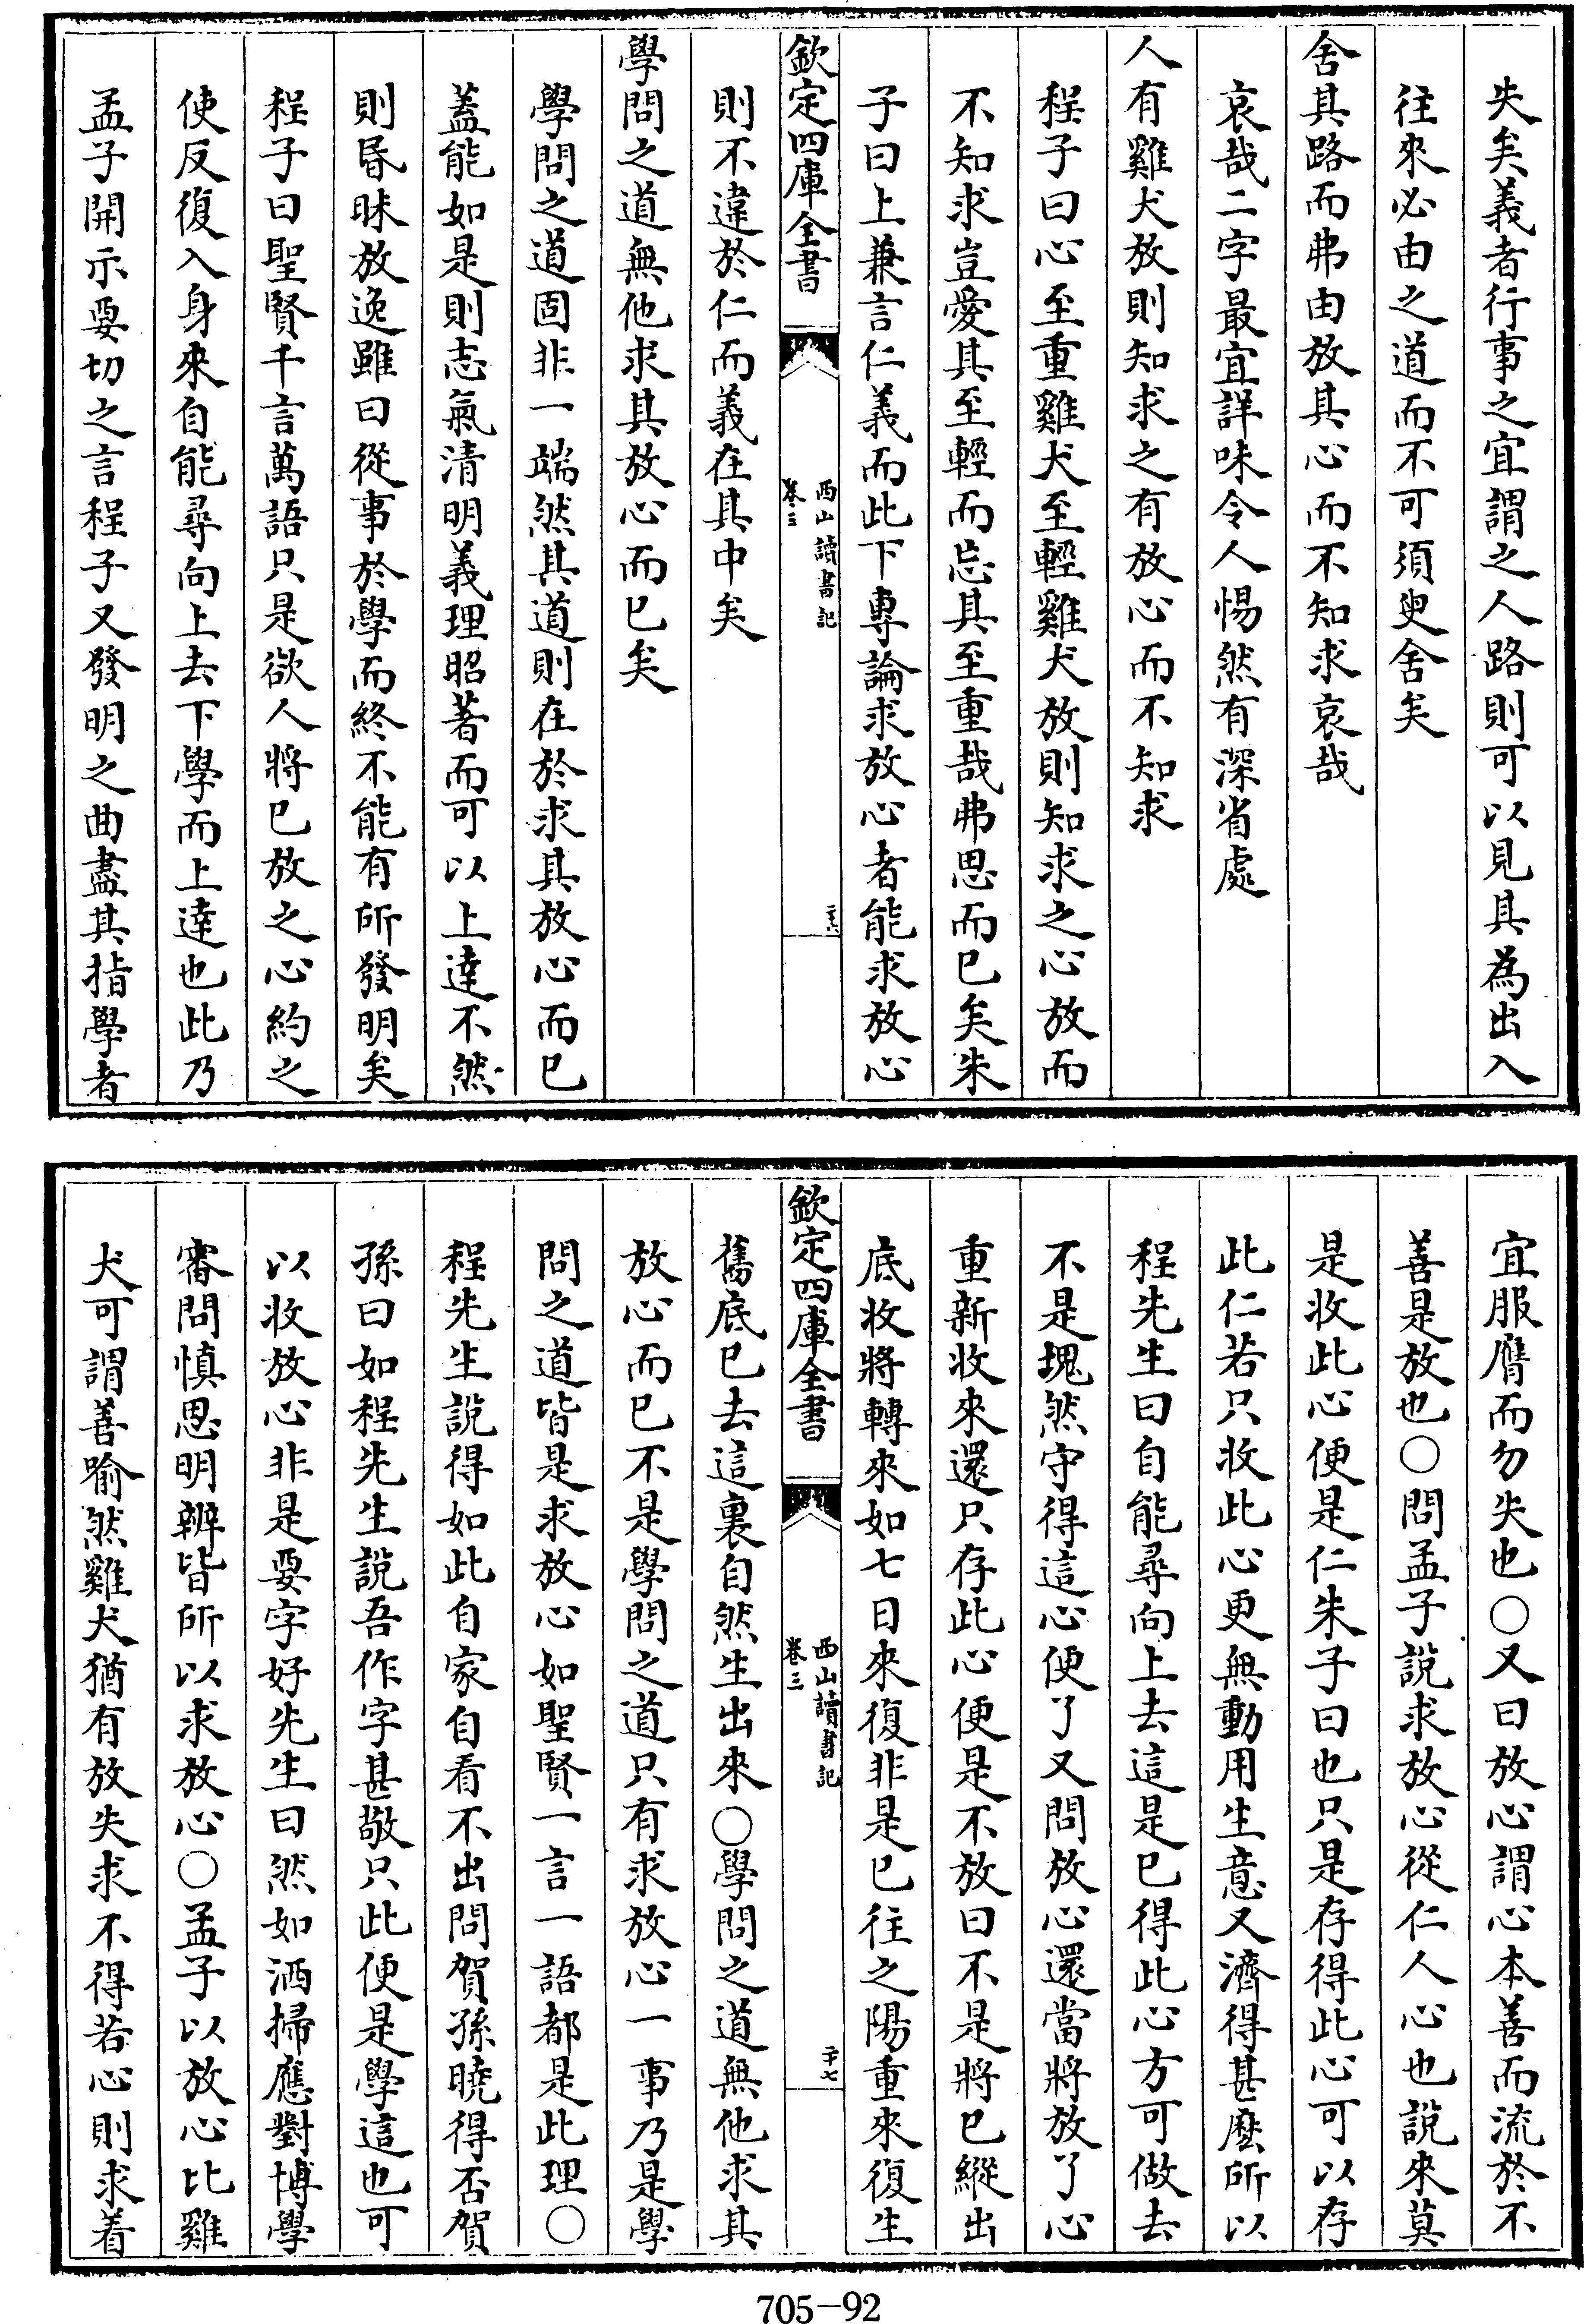 失矣義者行事之宜謂之人路則可以見其為出入
往來必由之道而不可須臾舍矣
舍其路而弗由放其心而不知求哀哉
哀哉二字最宜詳味令人惕然有深省處
人有雞犬放則知求之有放心而不知求
程子曰心至重雞犬至輕雞犬放則知求之心放而
不知求豈愛其至輕而忘其至重哉弗思而已矣朱
子曰上兼言仁義而此下專論求放心者能求放心
欽定四庫全書
西山讀書記
卷三
二十六
則不違於仁而義在其中矣
學問之道無他求其放心而已矣
學問之道固非一端然其道則在於求其放心而已
蓋能如是則志氣清明義理昭著而可以上達不然
則昏昧放逸雖曰從事於學而終不能有所發明矣
程子曰聖賢千言萬語只是欲人將已放之心約之
使反復入身來自能尋向上去下學而上達也此乃
孟子開示要切之言程子又發明之曲盡其指學者
宜服膺而勿失也○又曰放心謂心本善而流於不
善是放也○問孟子說求放心從仁人心也說來莫
是收此心便是仁朱子曰也只是存得此心可以存
此仁若只收此心更無動用生意又濟得甚麼所以
程先生曰自能尋向上去這是已得此心方可做去
不是塊然守得這心便了又問放心還當將放了心
重新收來還只存此心便是不放曰不是將已縱出
底收將轉來如七日來復非是已往之陽重來復生
欽定四庫全書
西山讀書記
卷三
二十七
舊底已去這裏自然生出來○學問之道無他求其
放心而已不是學問之道只有求放心一事乃是學
問之道皆是求放心如聖賢一言一語都是此理○
程先生說得如此自家自看不出問賀孫曉得否賀
孫曰如程先生說吾作字甚敬只此便是學這也可
以收放心非是要字好先生曰然如洒掃應對博學
審問慎思明辨皆所以求放心○孟子以放心比雞
犬可謂善喻然雞犬猶有放失求不得若心則求着
705-92